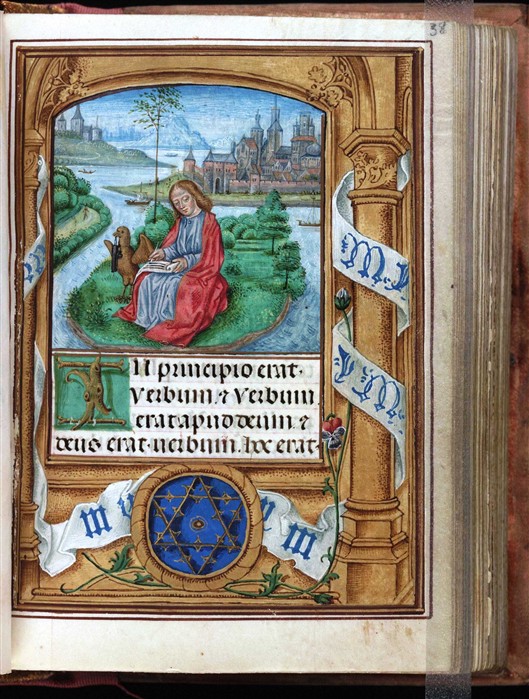 38
In principio erat·
verbum. ⁊ verbum
erat apud deum. ⁊
deus erat·verbum. hoc erat·